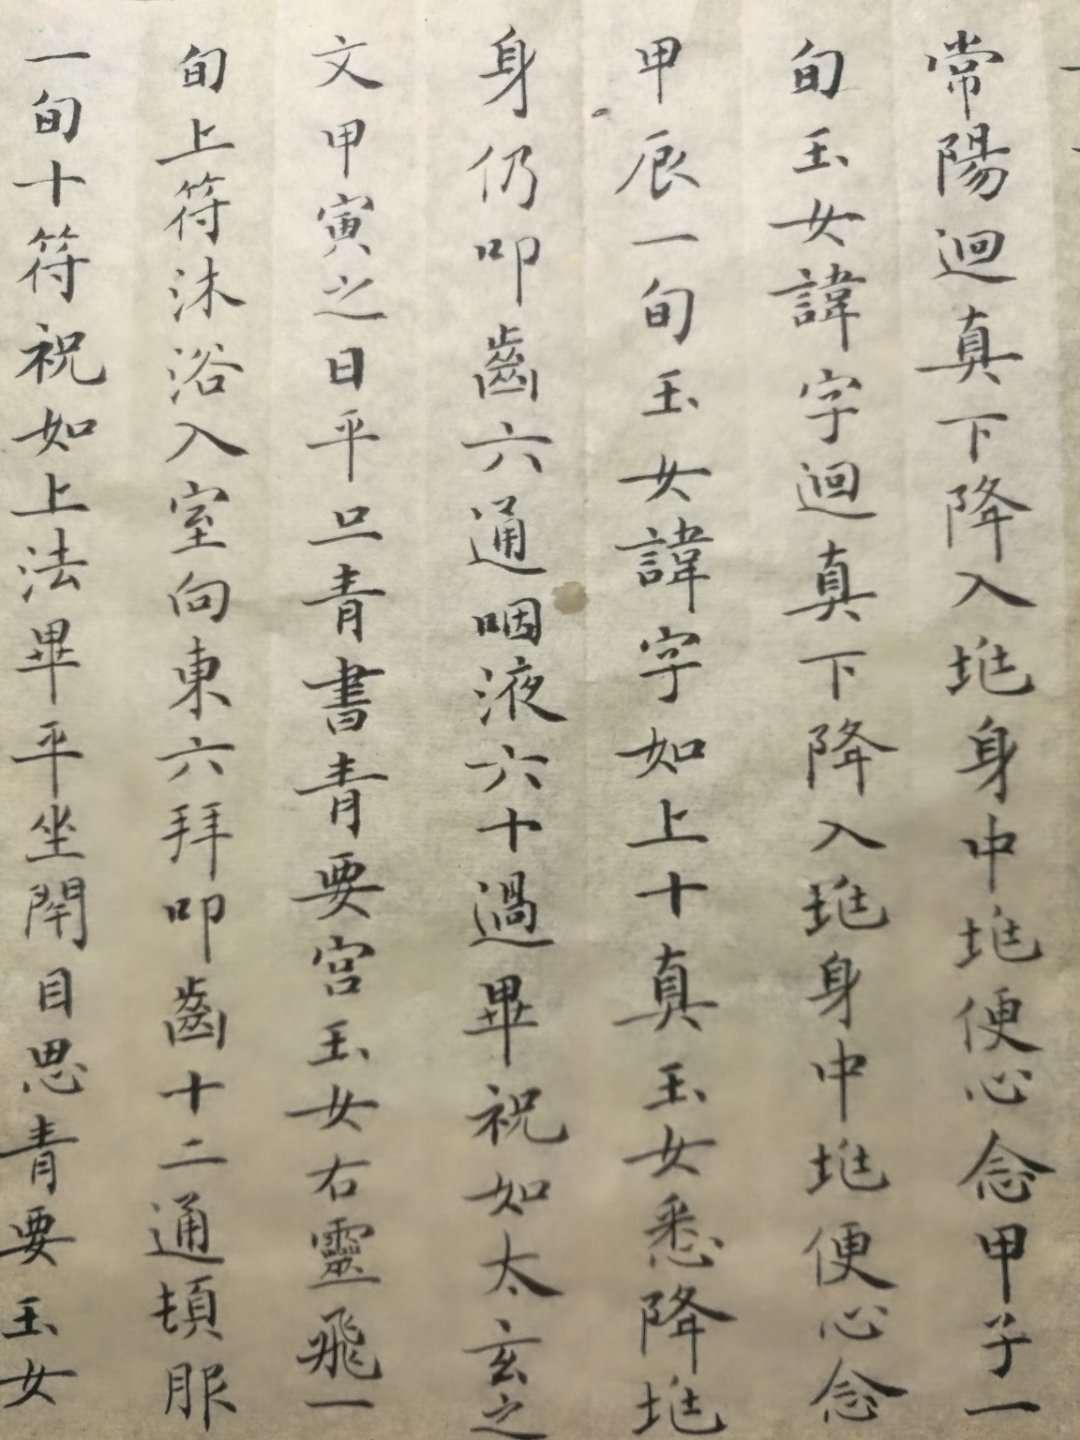 常陽迴真下降入兆身中兆便心念甲子一
旬玉女諱字迴真下降入兆身中兆便心念
甲辰一旬玉女諱字如上十真玉女悉降兆
身仍叩齒六通咽液六十過畢祝如太玄之
文甲寅之日平旦青書青要宮玉女右靈飛一
旬上符沐浴入室向東六拜叩齒十二通頓服
一旬十符祝如上法畢平坐閇目思青要玉女